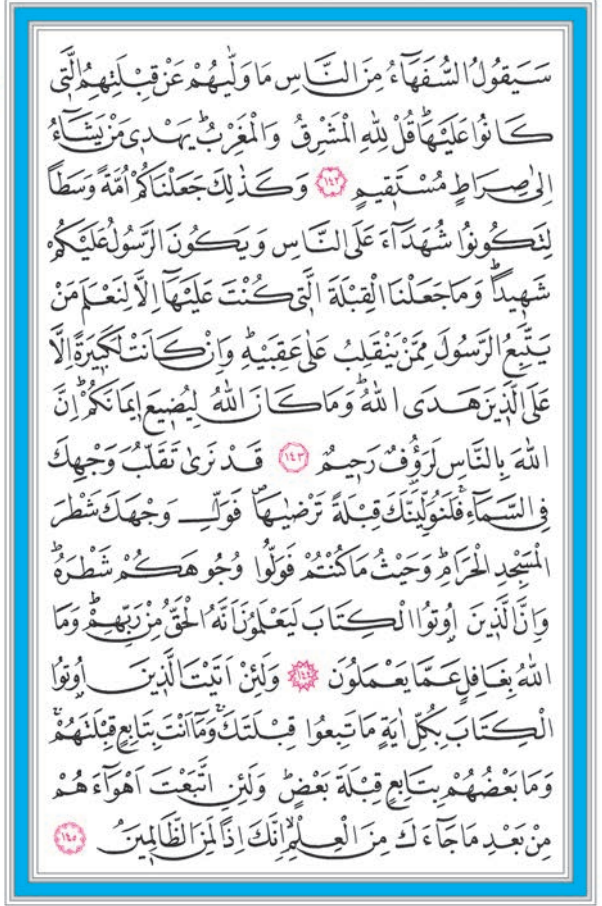 سَيَقُولُ السُّفَهَٓاءُ مِنَ النَّاسِ مَا وَلّٰيهُمْ عَنْ قِبْلَتِهِمُ الَّتٖى
كَانُوا عَلَيْهَاؕ قُلْ لِلّٰهِ الْمَشْرِقُ وَالْمَغْرِبُؕ يَهْدٖى مَنْ يَشَٓاءُ
اِلٰى صِرَاطٍ مُسْتَقٖيمٍ ﴿١٤٢﴾ وَكَذٰلِكَ جَعَلْنَاكُمْ اُمَّةً وَسَطًا
لِتَكُونُوا شُهَدَٓاءَ عَلَى النَّاسِ وَيَكُونَ الرَّسُولُ عَلَيْكُمْ
شَهٖيدًاؕ وَمَا جَعَلْنَا الْقِبْلَةَ الَّتٖى كُنْتَ عَلَيْهَٓا اِلَّا لِنَعْلَمَ مَنْ
يَتَّبِعُ الرَّسُولَ مِمَّنْ يَنْقَلِبُ عَلٰى عَقِبَيْهِؕ وَاِنْ كَانَتْ لَكَبٖيرَةً اِلَّا
عَلَى الَّذٖينَ هَدَى اللّٰهُؕ وَمَا كَانَ اللّٰهُ لِيُضٖيعَ اٖيمَانَكُمْؕ اِنَّ
اللّٰهَ بِالنَّاسِ لَرَؤُفٌ رَحٖيمٌ ﴿١٤٣﴾ قَدْ نَرٰى تَقَلُّبَ وَجْهِكَ
فِى السَّمَٓاءِۚ فَلَنُوَلِّيَنَّكَ قِبْلَةً تَرْضٰيهَاࣕ فَوَلِّ وَجْهَكَ شَطْرَ
الْمَسْجِدِ الْحَرَامِؕ وَحَيْثُ مَا كُنْتُمْ فَوَلُّوا وُجُوهَكُمْ شَطْرَهُؕ
وَاِنَّ الَّذٖينَ اُوتُوا الْكِتَابَ لَيَعْلَمُونَ اَنَّهُ الْحَقُّ مِنْ رَبِّهِمْؕ وَمَا
اللّٰهُ بِغَافِلٍ عَمَّا يَعْمَلُونَ ﴿١٤٤﴾ وَلَئِنْ اَتَيْتَ الَّذٖينَ اُوتُوا
الْكِتَابَ بِكُلِّ اٰيَةٍ مَا تَبِعُوا قِبْلَتَكَۚ وَمَٓا اَنْتَ بِتَابِعٍ قِبْلَتَهُمْۚ
وَمَا بَعْضُهُمْ بِتَابِعٍ قِبْلَةَ بَعْضٍؕ وَلَئِنِ اتَّبَعْتَ اَهْوَٓاءَهُمْ
مِنْ بَعْدِ مَا جَٓاءَكَ مِنَ الْعِلْمِۙ اِنَّكَ اِذًا لَمِنَ الظَّالِمٖينَۢ ﴿١٤٥﴾